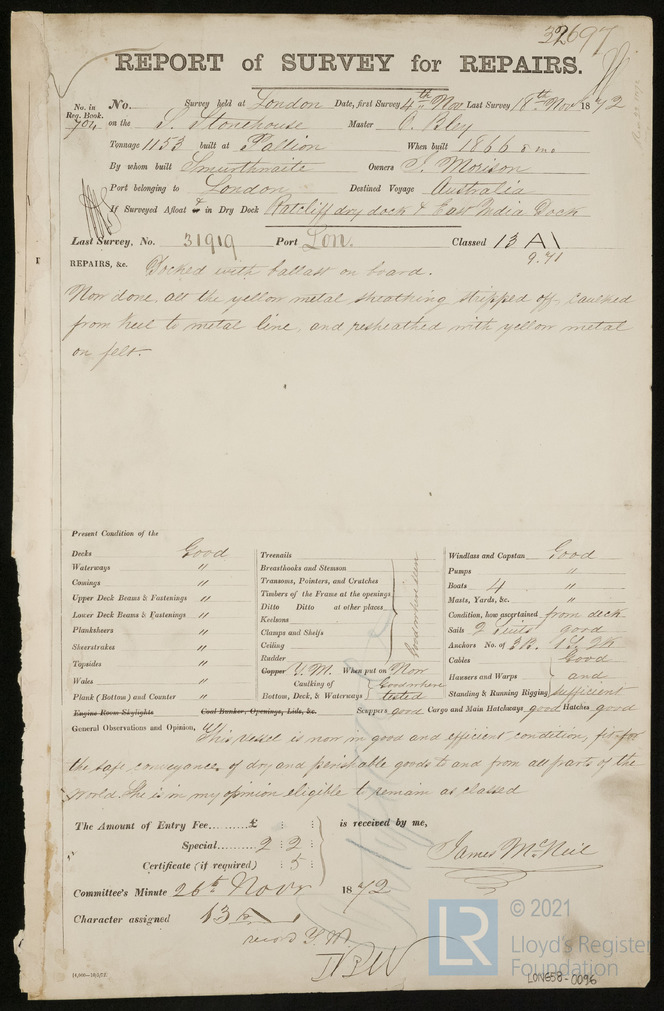 32697
REPORT of SURVEY for REPAIRS.
No. in Reg. Book. 704
No. Survey held at London Date, first Survey 4th Nov Last Survey 18th Nov 1872
on the S. Stonehouse Master O. Bley
Tonnage 1153 built at Pallion When built 1866 8 mo
By whom built Smurthwaite Owners J. Morison
Port belonging to London Destined Voyage Australia
If Surveyed Afloat & in Dry Dock Ratcliff dry dock & East India Dock
Last Survey, No. 31919 Port Lon. Classed 13 A1
9.71
REPAIRS, &c. Docked with ballast on board.
Now done, all the yellow metal sheathing stripped off, caulked
from keel to metal line, and resheathed with yellow metal
on felt.
Present Condition of the
Decks Good
Waterways "
Comings "
Upper Deck Beams & Fastenings "
Lower Deck Beams & Fastenings "
Planksheers "
Sheerstrakes "
Topsides "
Wales "
Plank (Bottom) and Counter "
Engine Room Skylights Coal Bunker, Openings, Lids, &c.
Treenails
Breasthooks and Stemson
Transoms, Pointers, and Crutches
Timbers of the Frame at the openings
Ditto Ditto at other places
Keelsons
Clamps and Shelfs
Ceiling
Rudder
Good where seen
Copper Y.M. When put on Now
Caulking of Bottom, Deck, & Waterways Good where tested
Windlass and Capstan Good
Pumps "
Boats 4 "
Masts, Yards, &c. "
Condition, how ascertained from deck
Sails 2 Suits good
Anchors No. of 3B. 1S. 2K
Cables Good
Hausers and Warps and
Standing & Running Rigging sufficient
Scuppers good Cargo and Main Hatchways good Hatches good
General Observations and Opinion,
This vessel is now in good and efficient condition, fit for
the safe conveyance of dry and perishable goods to and from all parts of the
World. She is in my opinion eligible to remain as classed
The Amount of Entry Fee......... £ : :
Special......... 2 : 2 :
Certificate (if required) : 5 :
is received by me,
James McNeil
Committee's Minute 26th Novr 1872
Character assigned 13 A1
record Y.M.
© 2021
LR
Lloyd's Register
Foundation
LON658-0096